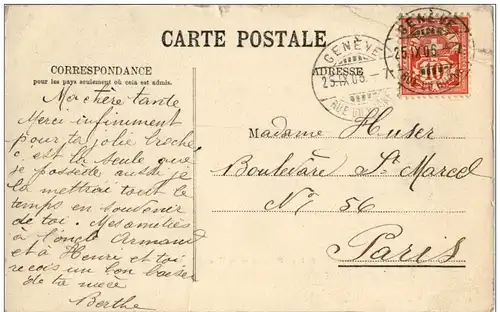 CARTE POSTALE
CORRESPONDANCE
pour les pays seulement où cela est admis.
ADRESSE
GENÈVE
25.IX.06.-7
RUE DU
GENÈVE
25.IX.06
10
Ma chère tante
Merci infiniment
pour ta jolie broche
c est la seule que
je possède aussi je
la mettrai tout le
temps en souvenir
de toi. Mes amitiés
à l'oncle Armand
et à Henri et toi
reçois un bon baiser
de ta nièce
Berthe
Madame Huser
Boulevare St Marcel
No 56
Paris